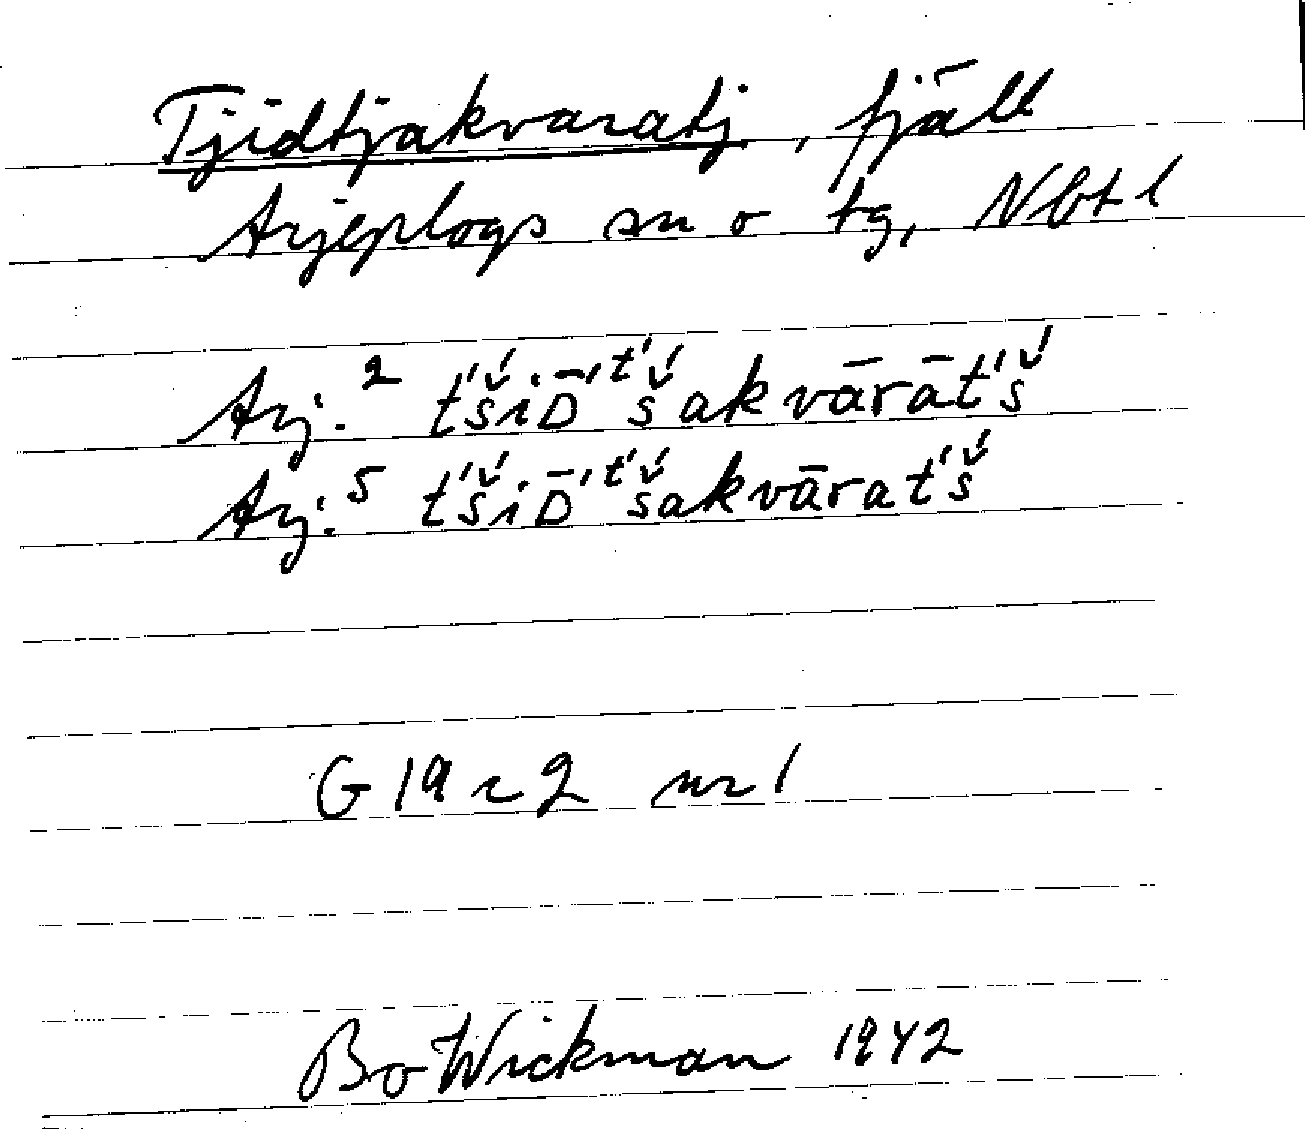 Tjidtjakvaratj, fjäll
Arjeplogs sn o tg, Nbt l
Arj.² t́š́iD̄́ t́š́akvārāt́š́
Arj.⁵ t́š́iD̄́ t́š́akvārat́š́
G 19 c 2 nr 1
Bo Wickman 1942